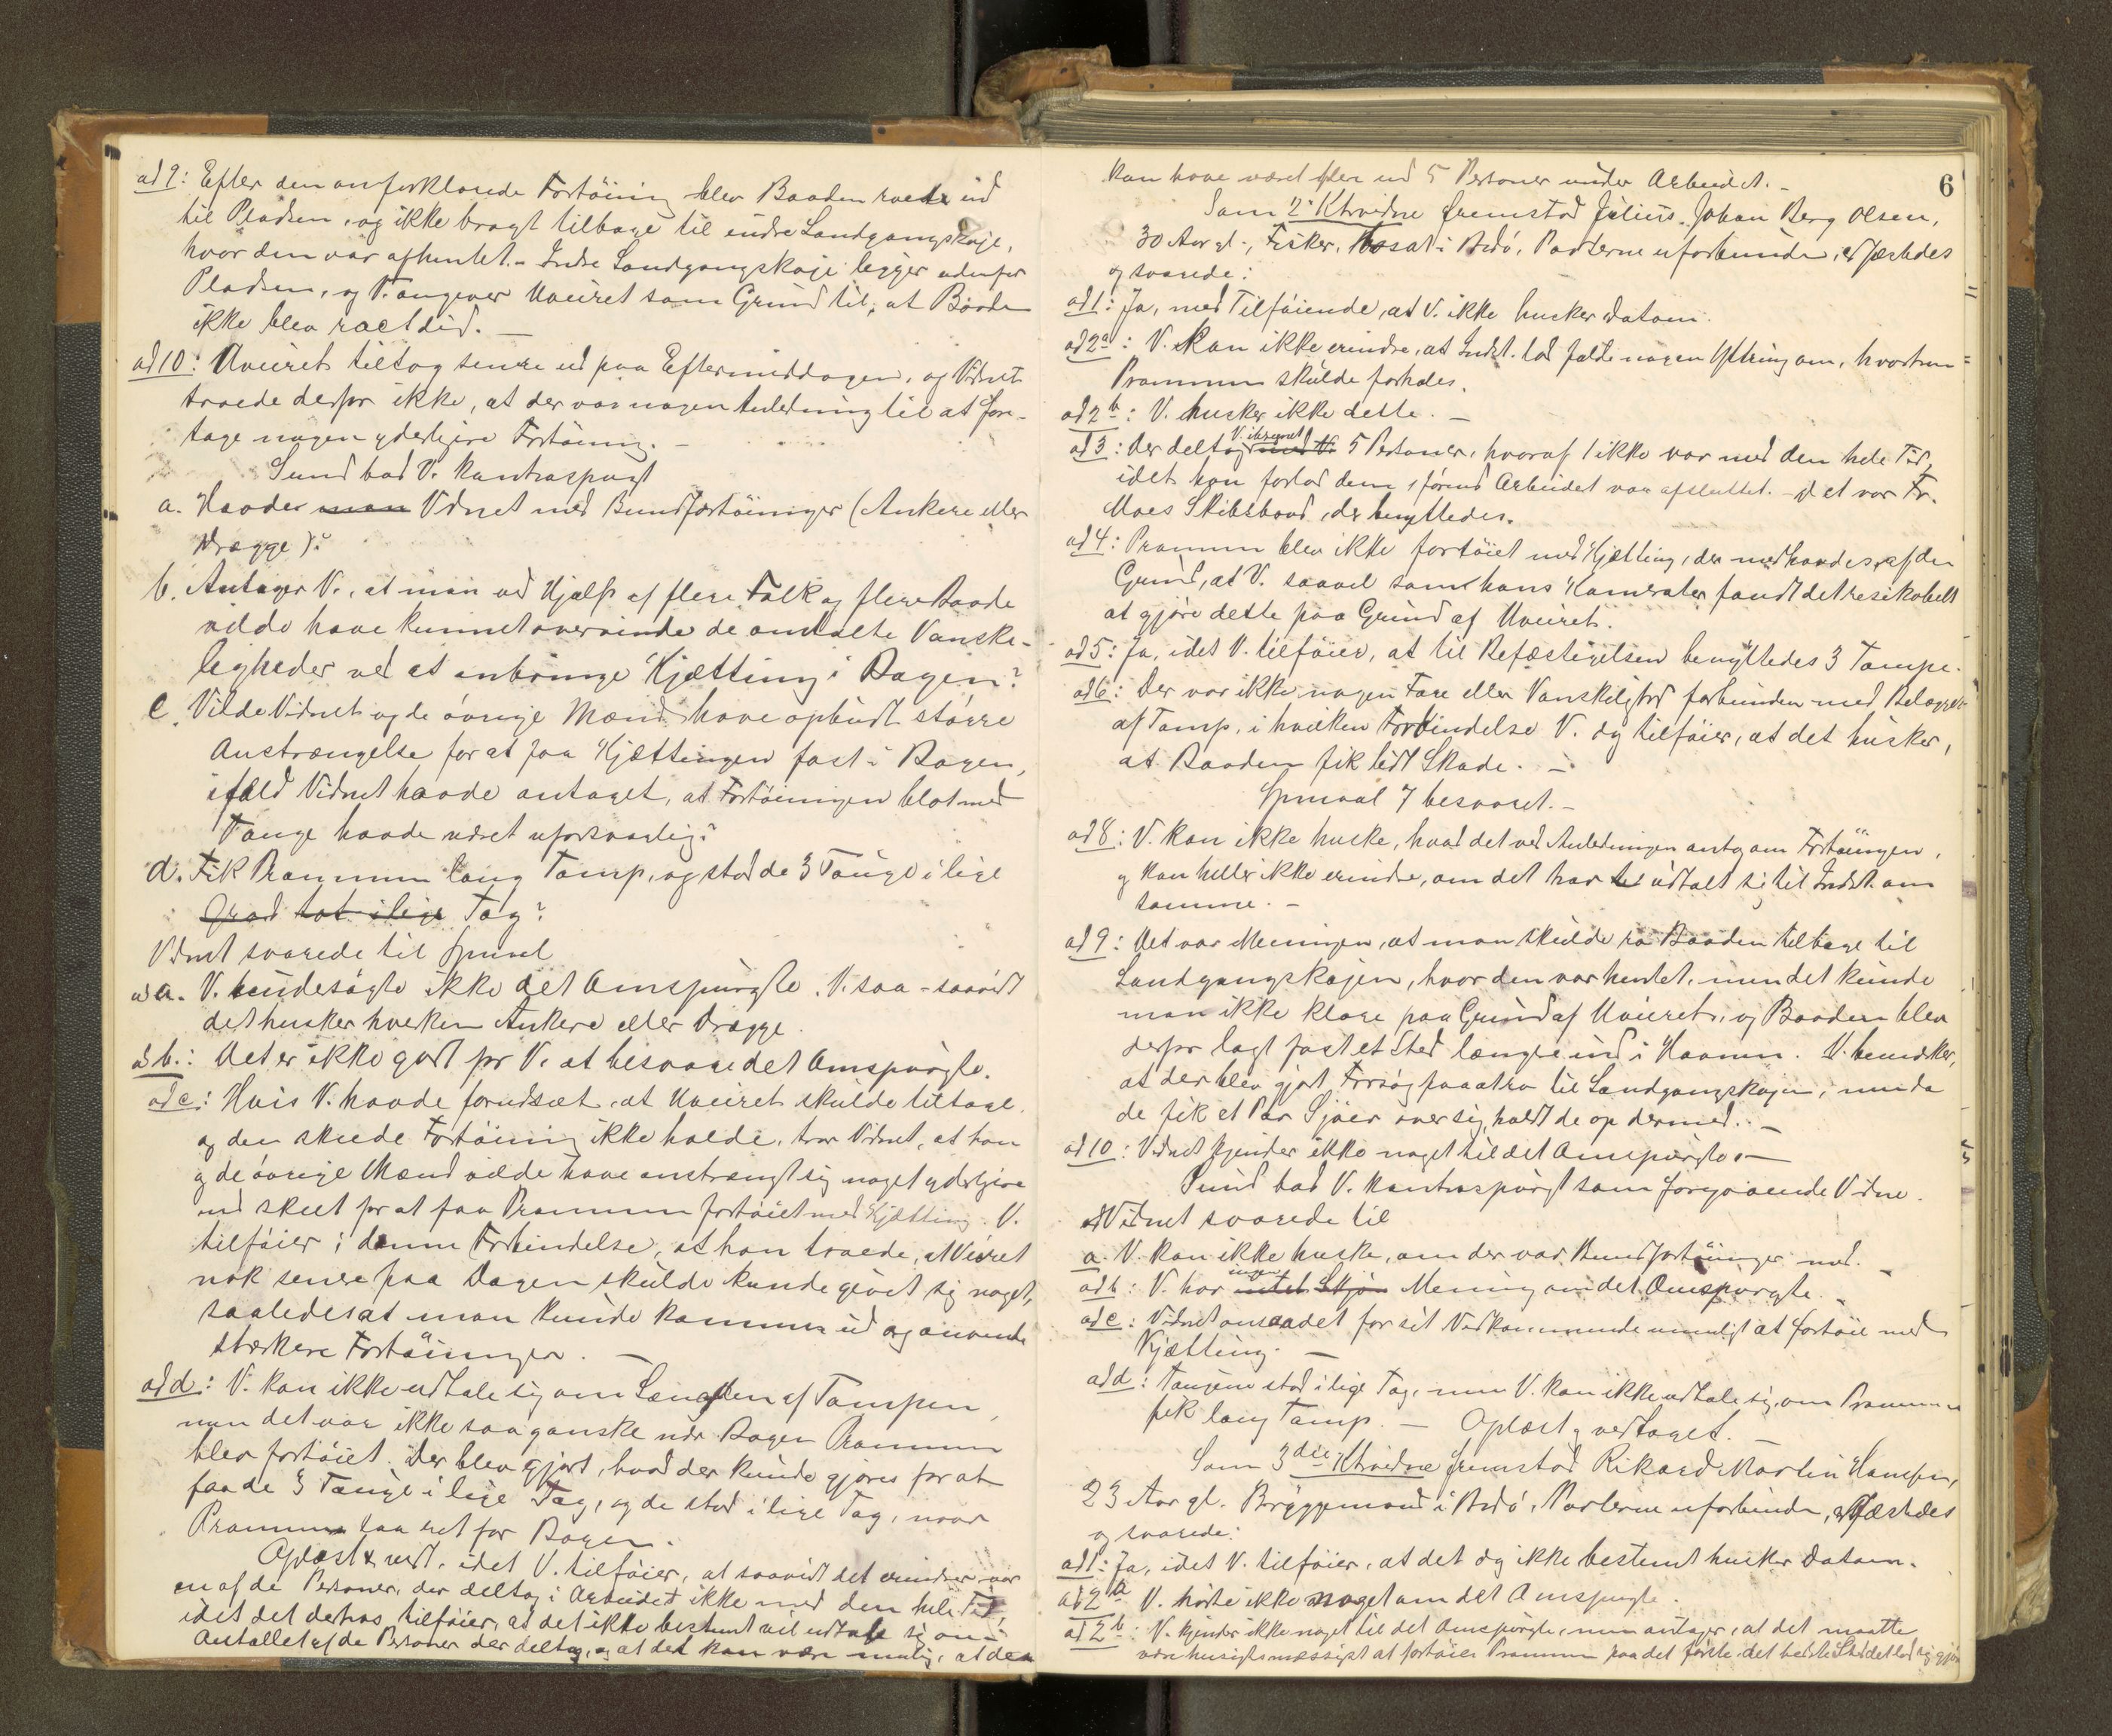 ad 9: Efter den anforklarede Fortöining blev Baaden roet ind
til Pladsen, og ikke bragt tilbage til indre Landgangskaje,
hvor den var afhentet. - Indre Landgangskaje ligger udenfor
Pladsen, og V. angiver Uveiret som Grund til, at Baaden
ikke blev roet did. -
ad 10: Uveiret tiltog senere ud paa Eftermiddagen, og Vidnet
troede derfor ikke, at der var nogen Anledning til at fore-
tage nogen yderligere Fortöining. -
Sund bad V. kontraspurgt
a. Havde man Vidnet med Bundfortöininger (Ankere eller
Drægge)?
b. Antager V., at man ved Hjælp af flere Folk og flere Baade
vilde have kunnet overvinde de omtalte Vanske-
ligheder ved at anbringe Kjætting i Bøgen?
c. Vilde Vidnet og de övrige Mænd have opbudt större
Anstrængelse for at faa Kjættingen fast i Bøgen,
ifald Vidnet havde antaget, at Fortöiningen blot med
Tauge havde været uforsvarlig?
d. Fik Prammen lang Tamp, og stod de 3 Tauge i lige
Grad tot i lige Tag?
Vidnet svarede til Spmaal
ad a. V. undersögte ikke det Omspurgte. V. saa - saavidt
det husker hverken Ankere eller Drægge.
ad b.: Det er ikke godt for V. at besvare det Omspurgte.
ad c: Hvis V. havde forudsat, at Uveiret skulde tiltage,
og den skede Fortöining ikke holde, tror Vidnet, at han
og de övrige Mænd vilde have anstrængt sig noget yderligere
end skeet for at faa Prammen fortöiet med Kjætting. V.
tilföier i denne Forbindelse, at han troede, at Veiret
nok senere paa Dagen skulde kunde givet sig noget,
saaledes at man kunde komme ud og anvende
stærkere Fortöininger. -
ad d: V. kan ikke udtale sig om Længden af Tampen,
men det var ikke saa ganske nær Bøgen Prammen
blev fortöiet. Der blev gjort, hvad der kunde gjöres for at
faa de 3 Tauge i lige Tag, og de stod i lige Tag, naar
Prammen laa ret for Bøgen.
Oplæst & vedt. idet V. tilföier, at saavidt det erindrer var
en af de Personer, der deltog i Arbeidet ikke med den hele Tid,
idet det derhos tilföier, at det ikke bestemt vil udtale sig om
Antallet af de Personer der deltog, og at det kan være mulig, at der
6
kan have været flere end 5 Personer under Arbeidet. -
Som 2. Ktvidne fremstod Julius Johan Berg Olsen,
30 Aar gl., Fisker, Bosat i Bodö, Parterne uforbunden, edfæstedes
og svarede:
ad 1: Ja, med Tilföiende, at V. ikke husker Datoen.
ad 2a: V. kan ikke erindre, at Indst. lod falde nogen Yttring om, hvorhen
Prammen skulde forhales.
ad 2b: V. husker ikke dette. -
ad 3: Der deltog V. iberegnet med V. 5 Personer, hvoraf 1 ikke var med den hele Tid,
idet han forlod dem, förend Arbeidet var afsluttet. - Det var Fr.
Moes Skibsbaad, der benyttedes.
ad 4: Prammen blev ikke fortöiet med Kjætting, der medhavdes, af den
Grund, at V. saavel som hans Kamerater fandt det resikabelt
at gjöre dette paa Grund af Uveiret.
ad 5: Ja, idet V. tilföier, at til Befæstigelsen benyttedes 3 Tampe.
ad 6: Der var ikke nogen Fare eller Vanskelighed forbunden med
af Tamp, i hvilken Forbindelse V. dog tilföier, at det husker,
at Baaden fik lidt Skade. -
Spmaal 7 besvaret. -
ad 8: V. kan ikke huske, hvad det ved Anledningen antog om Fortöiningen,
og kan heller ikke erindre, om det har udtalt sig til Indst. om
samme. -
ad 9: Det var Meningen, at man skulde ro Baaden tilbage til
Landgangskajen, hvor den var hentet, men det kunde
man ikke klare paa Grund af Uveiret, og Baaden blev
derfor lagt fast et Sted længre ind i Havnen. V. bemærker,
at der blev gjort Forsög paa at ro til Landgangskajen, men da
de fik et Par Sjöer over sig, holdt de op dermed. -
ad 10: Vidnet kjender ikke noget til det Omspurgte. -
Sund bad V. kontraspurgt som foregaaende Vidne.
Vidnet svarede til
a. V. kan ikke huske, om der var Bundfortöininger med. -
ad b: V. har ingen intet Skjön Mening om det Omspurgte. -
ad c: Vidnet ansaa det for sit Vedkommende umuligt at fortöie med
Kjætting. -
ad d: Taugene stod i lige Tag, men V. kan ikke udtale sig, om Prammen
fik lang Tamp. - Oplæst og vedtaget. -
Som 3die Ktvidne fremstod Rikard Martin Hansen,
23 Aar gl. Bryggemand i Bodö, Parterne uforbunden, edfæstedes
og svarede:
ad 1: Ja, idet V. tilföier, at det dog ikke bestemt husker Datoen.
ad 2a V. hörte ikke noget om det Omspurgte.
ad 2b: V. kjender ikke noget til det Omspurgte, men antager, at det maatte
være hensigtsmæssigst at fortöie Prammen paa det förste det bedste Sted det lod sig gjöre